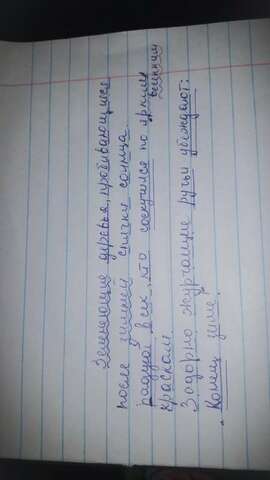 Зеленеющие деревья, пробивающиеся
после зимней спячки солнца.
радуют всех, кто соскучился по ярким
весенним
краскам.
Задорно журчащие ручьи убеждают:
Конец зиме.